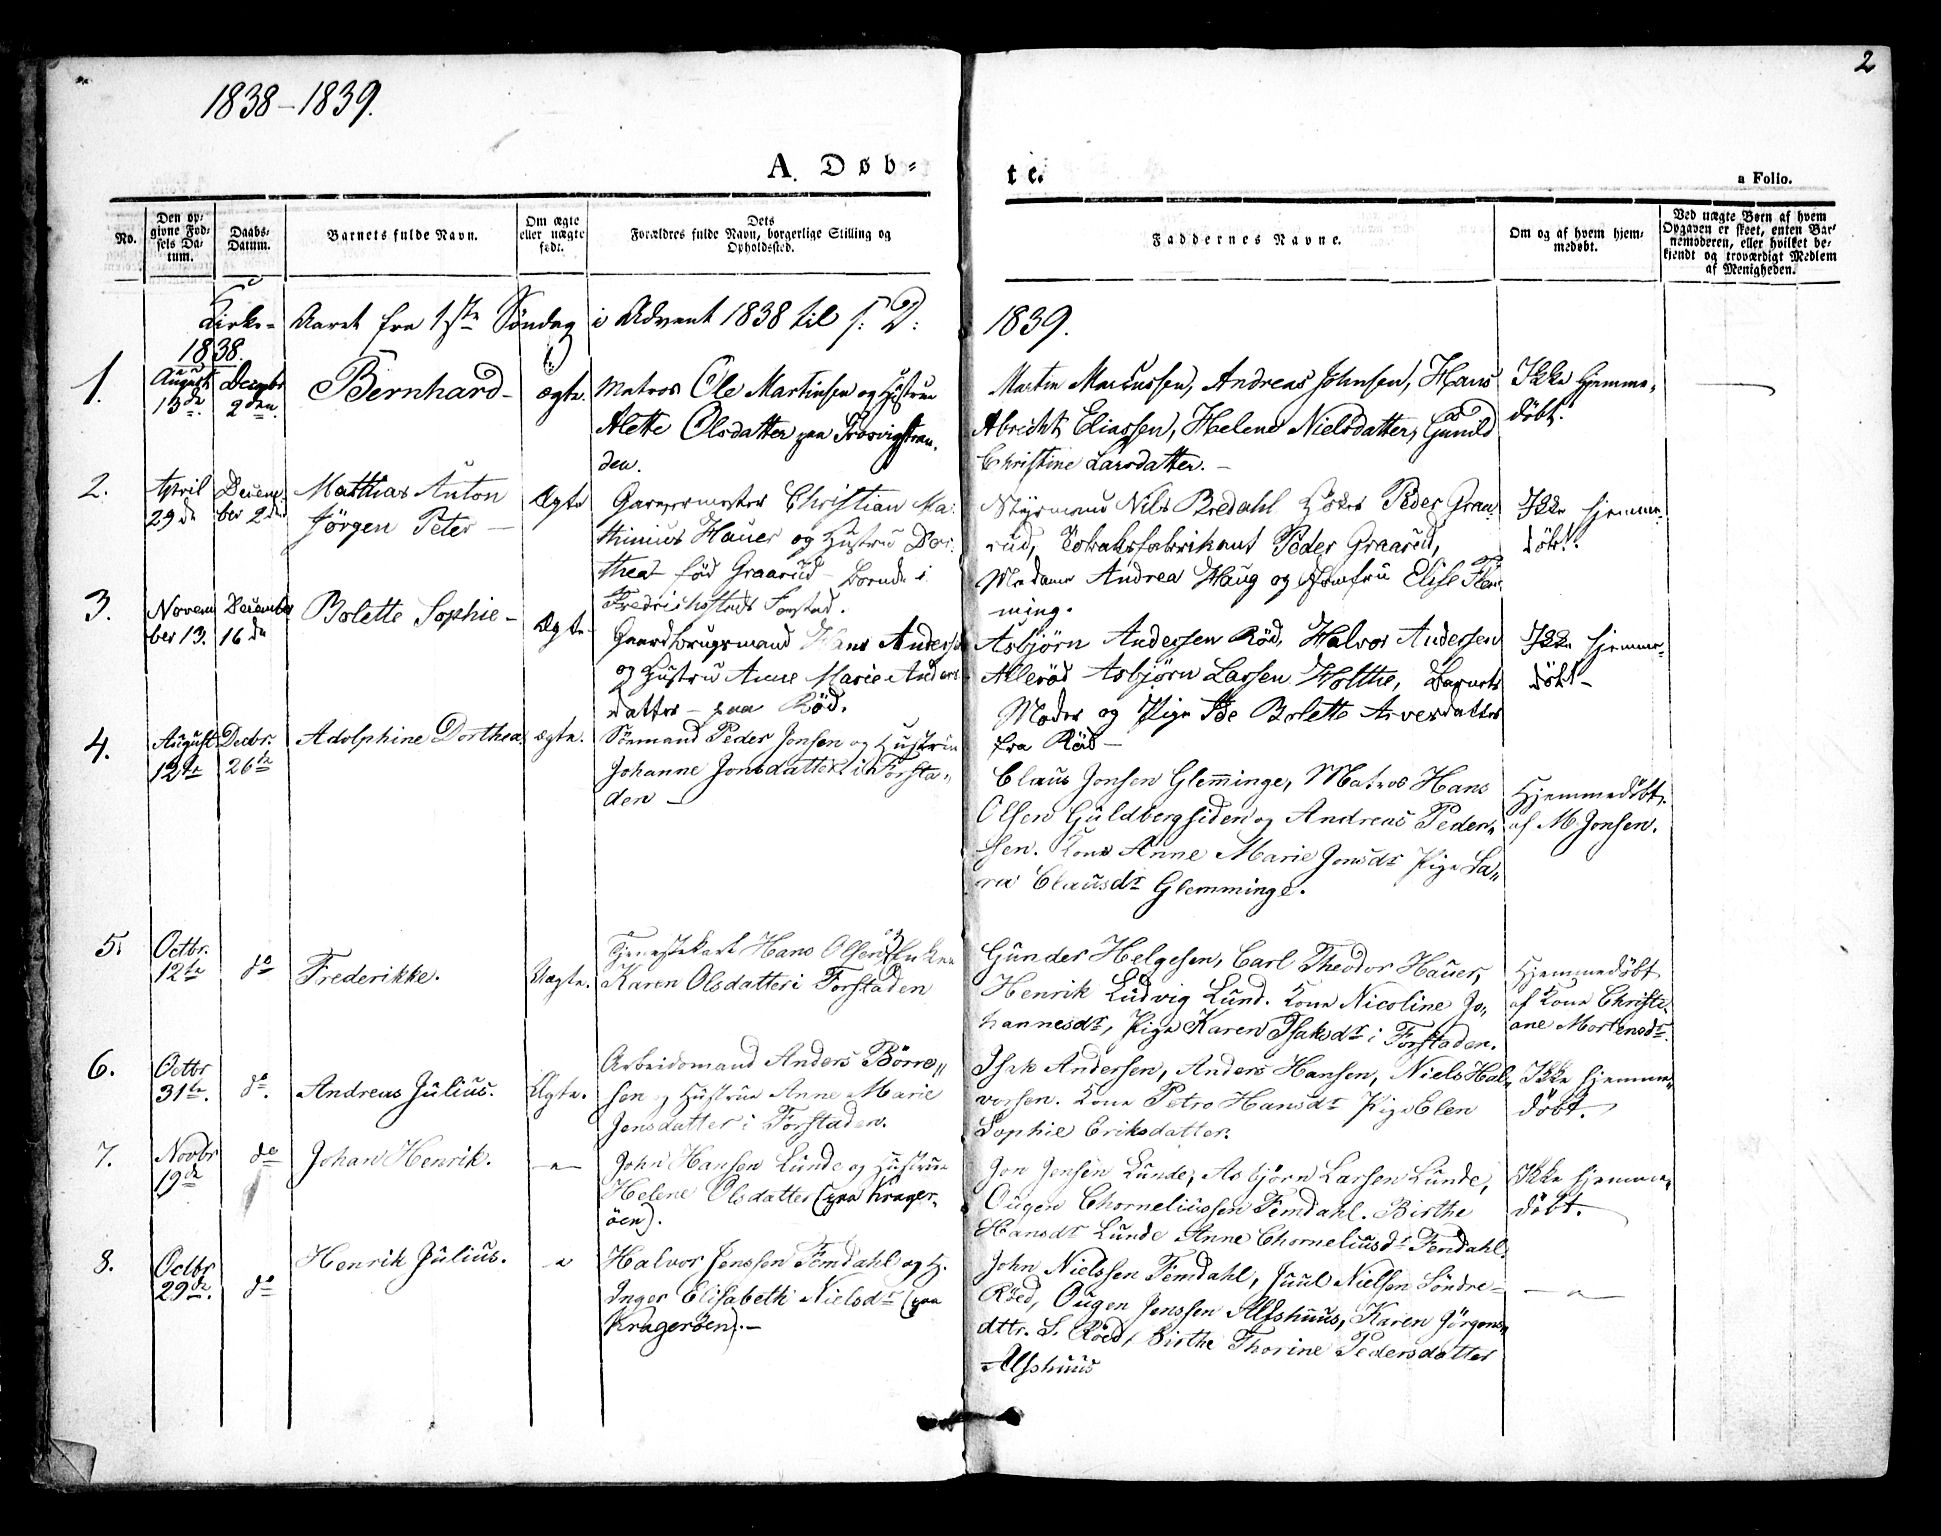 2
1838–1839.
A. Døb-
te.
a Folio.
No.
Den op-
givne Fød-
sels Da-
tum.
Daabs-
Datum.
Barnets fulde Navn.
Om ægte
eller uægte
født.
Dets
Forældres fulde Navn, borgerlige Stilling og
Opholdssted.
Faddernes Navne.
Om og af hvem hjem-
medøbt.
Ved uægte Børn af hvem
Opgaven er skeet, enten Bar-
nemoderen, eller hvilket be-
kjendt og troværdigt Medlem
af Menigheden.
Kirke- Aaret fra 1ste Søndag i Advent 1838 til s: D: 1839.
1838.
1.
August
13de
Decmbr
2den.
Bernhard –
ægte.
Matros Ole Martinsen og Hustrue
Alette Olsdatter paa Trosvigstran-
den.
Martin Marcussen, Andreas Johnsen, Hans
Abrecht Eliassen, Helene Nielsdatter, Gunild
Christine Larsdatter. –
Ikke hjemme-
døbt.
2.
April
29de
Decem-
ber 2den
Matthias Anton
Jörgen Peter –
Ægte
Garvermester Christian Ma-
thinius Hauer og Hustru Dor-
thea født Graarud – boende i
Fredrichstads Forstad.
Styrmand Nils Bredahl Peder Graa-
rud, Tobaksfabrikant Peder Graarud,
Madame Andrea Haug og Jomfru Elise Flem-
ming.
Ikke hjemme-
döbt.
3.
Novem
ber 13.
December
16de
Bolette Sophie –
Ægte
Gaardbrugsmand Hans Anderse
og Hustru Anne Marie Anders-
datter – paa Röd.
Asbjörn Andersen Röd, Halvor Andersen
Alleröd Asbjörn Larsen Holthe, Barnets
Moder og Pige Ide Bolette Arvesdatter
fra Röd –
Ikke hjemme-
döbt –
4.
August
12te
Decbr.
26te
Adolphine Dorthea.
ægte.
Sömand Peder Jonsen og Hustrue
Johanne Jonsdatter i Forsta-
den –
Claus Jonsen Glem̄inge, Matros Hans
Olsen Guldbergsiden og Andreas Peder-
sen. Kone Anne Marie Jonsdr Pige Sa-
ra Clausdr Glemminge.
Hjemmedöbt
af M. Jonsen.
5.
Octbr.
12te
do
Frederikke.
Uægte.
Tjenestekarl Hans Olsen og Enken
Karen Olsdatter i Forstaden
Gunder Helgesen, Carl Theodor Hauer,
Henrik Ludvig Lund. Kone Nicoline Jo-
hannesdr, Pige Karen Isaksdr i Forstaden.
Hjemmedöbt
af Kone Christi-
ane Mortensdr.
6.
Octbr
31te.
do.
Andreas Julius.
Ægte.
Arbeidsmand Anders Börre-
sen og Hustrue Anne Marie
Jensdatter i Forstaden.
Isak Andersen, Anders Hansen, Niels Hal-
vorsen. Kone Petro Hansdr Pige Elen
Sophie Eriksdatter.
Ikke hjemme-
döbt.
7.
Novbr
19de
do
Johan Henrik.
–"–
John Hansen Lunde og Hustrue
Helene Olsdatter (paa Krager-
öen).
Jon Jensen Lunde, Asbjörn Larsen Lunde,
Ougen Chorneliussen Femdahl. Birthe
Hansdr Lunde Anne Chorneliusdr Femdahl.
Ikke hjemme-
döbt.
8.
Octbr
29de.
do
Henrik Julius.
"
Halvor Jenssen Femdahl og H.
Inger Elisabeth Nielsdr (paa
Krageröen). –
John Nielssen Femdahl, Juul Nielsen Söndre-
Röed, Ougen Jenssen Alfshuus, Karen Jörgens-
dttr. S. Röed, Birthe Thorine Pedersdatter
Alfshuus
– " –